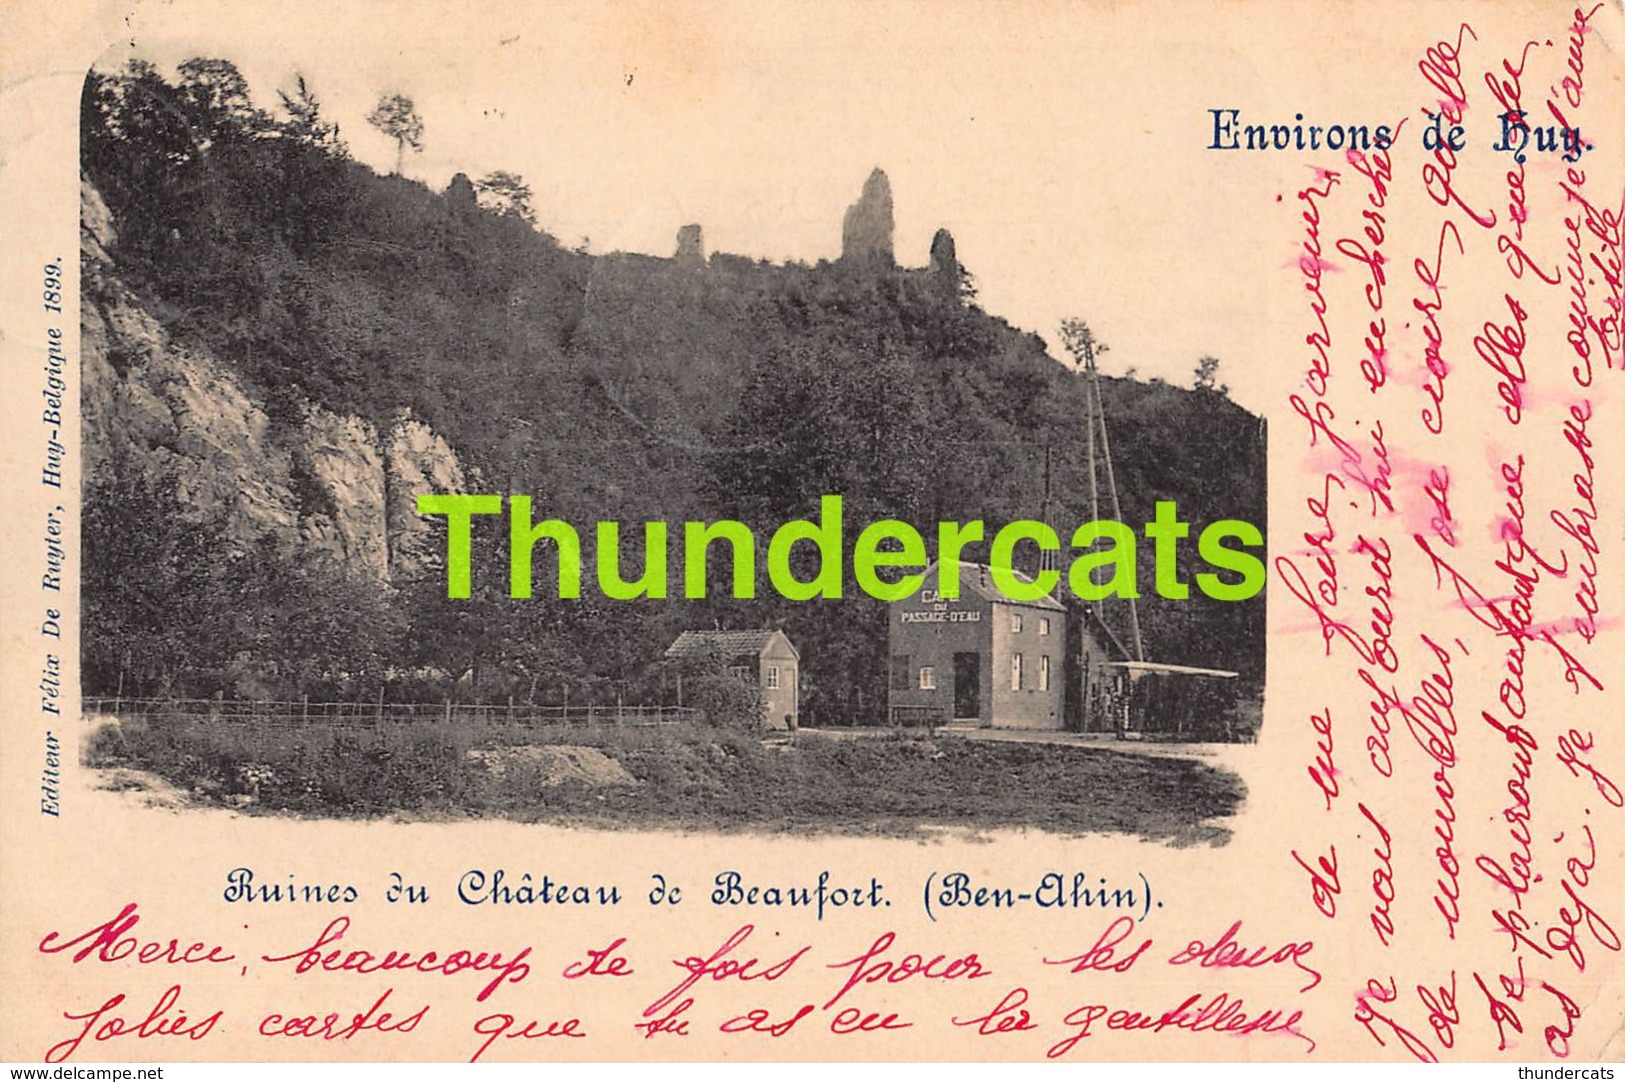 Environs de Huy.
Editeur Félix De Ruyter, Huy-Belgique 1899.
CAFÉ
DU
PASSAGE-D'EAU
Thundercats
Ruines du Château de Beaufort. (Ben-Ahin).
Merci, beaucoup de fois pour les deux
jolies cartes que tu as eu la gentillesse
de me faire parvenir,
Je vais aujourd'hui en chercher
de nouvelles, j'ose croire, qu'elle
te plairont autant que elles que tu
as déjà. Je t'embrasse comme je t'aime
delcampe.net
thundercats